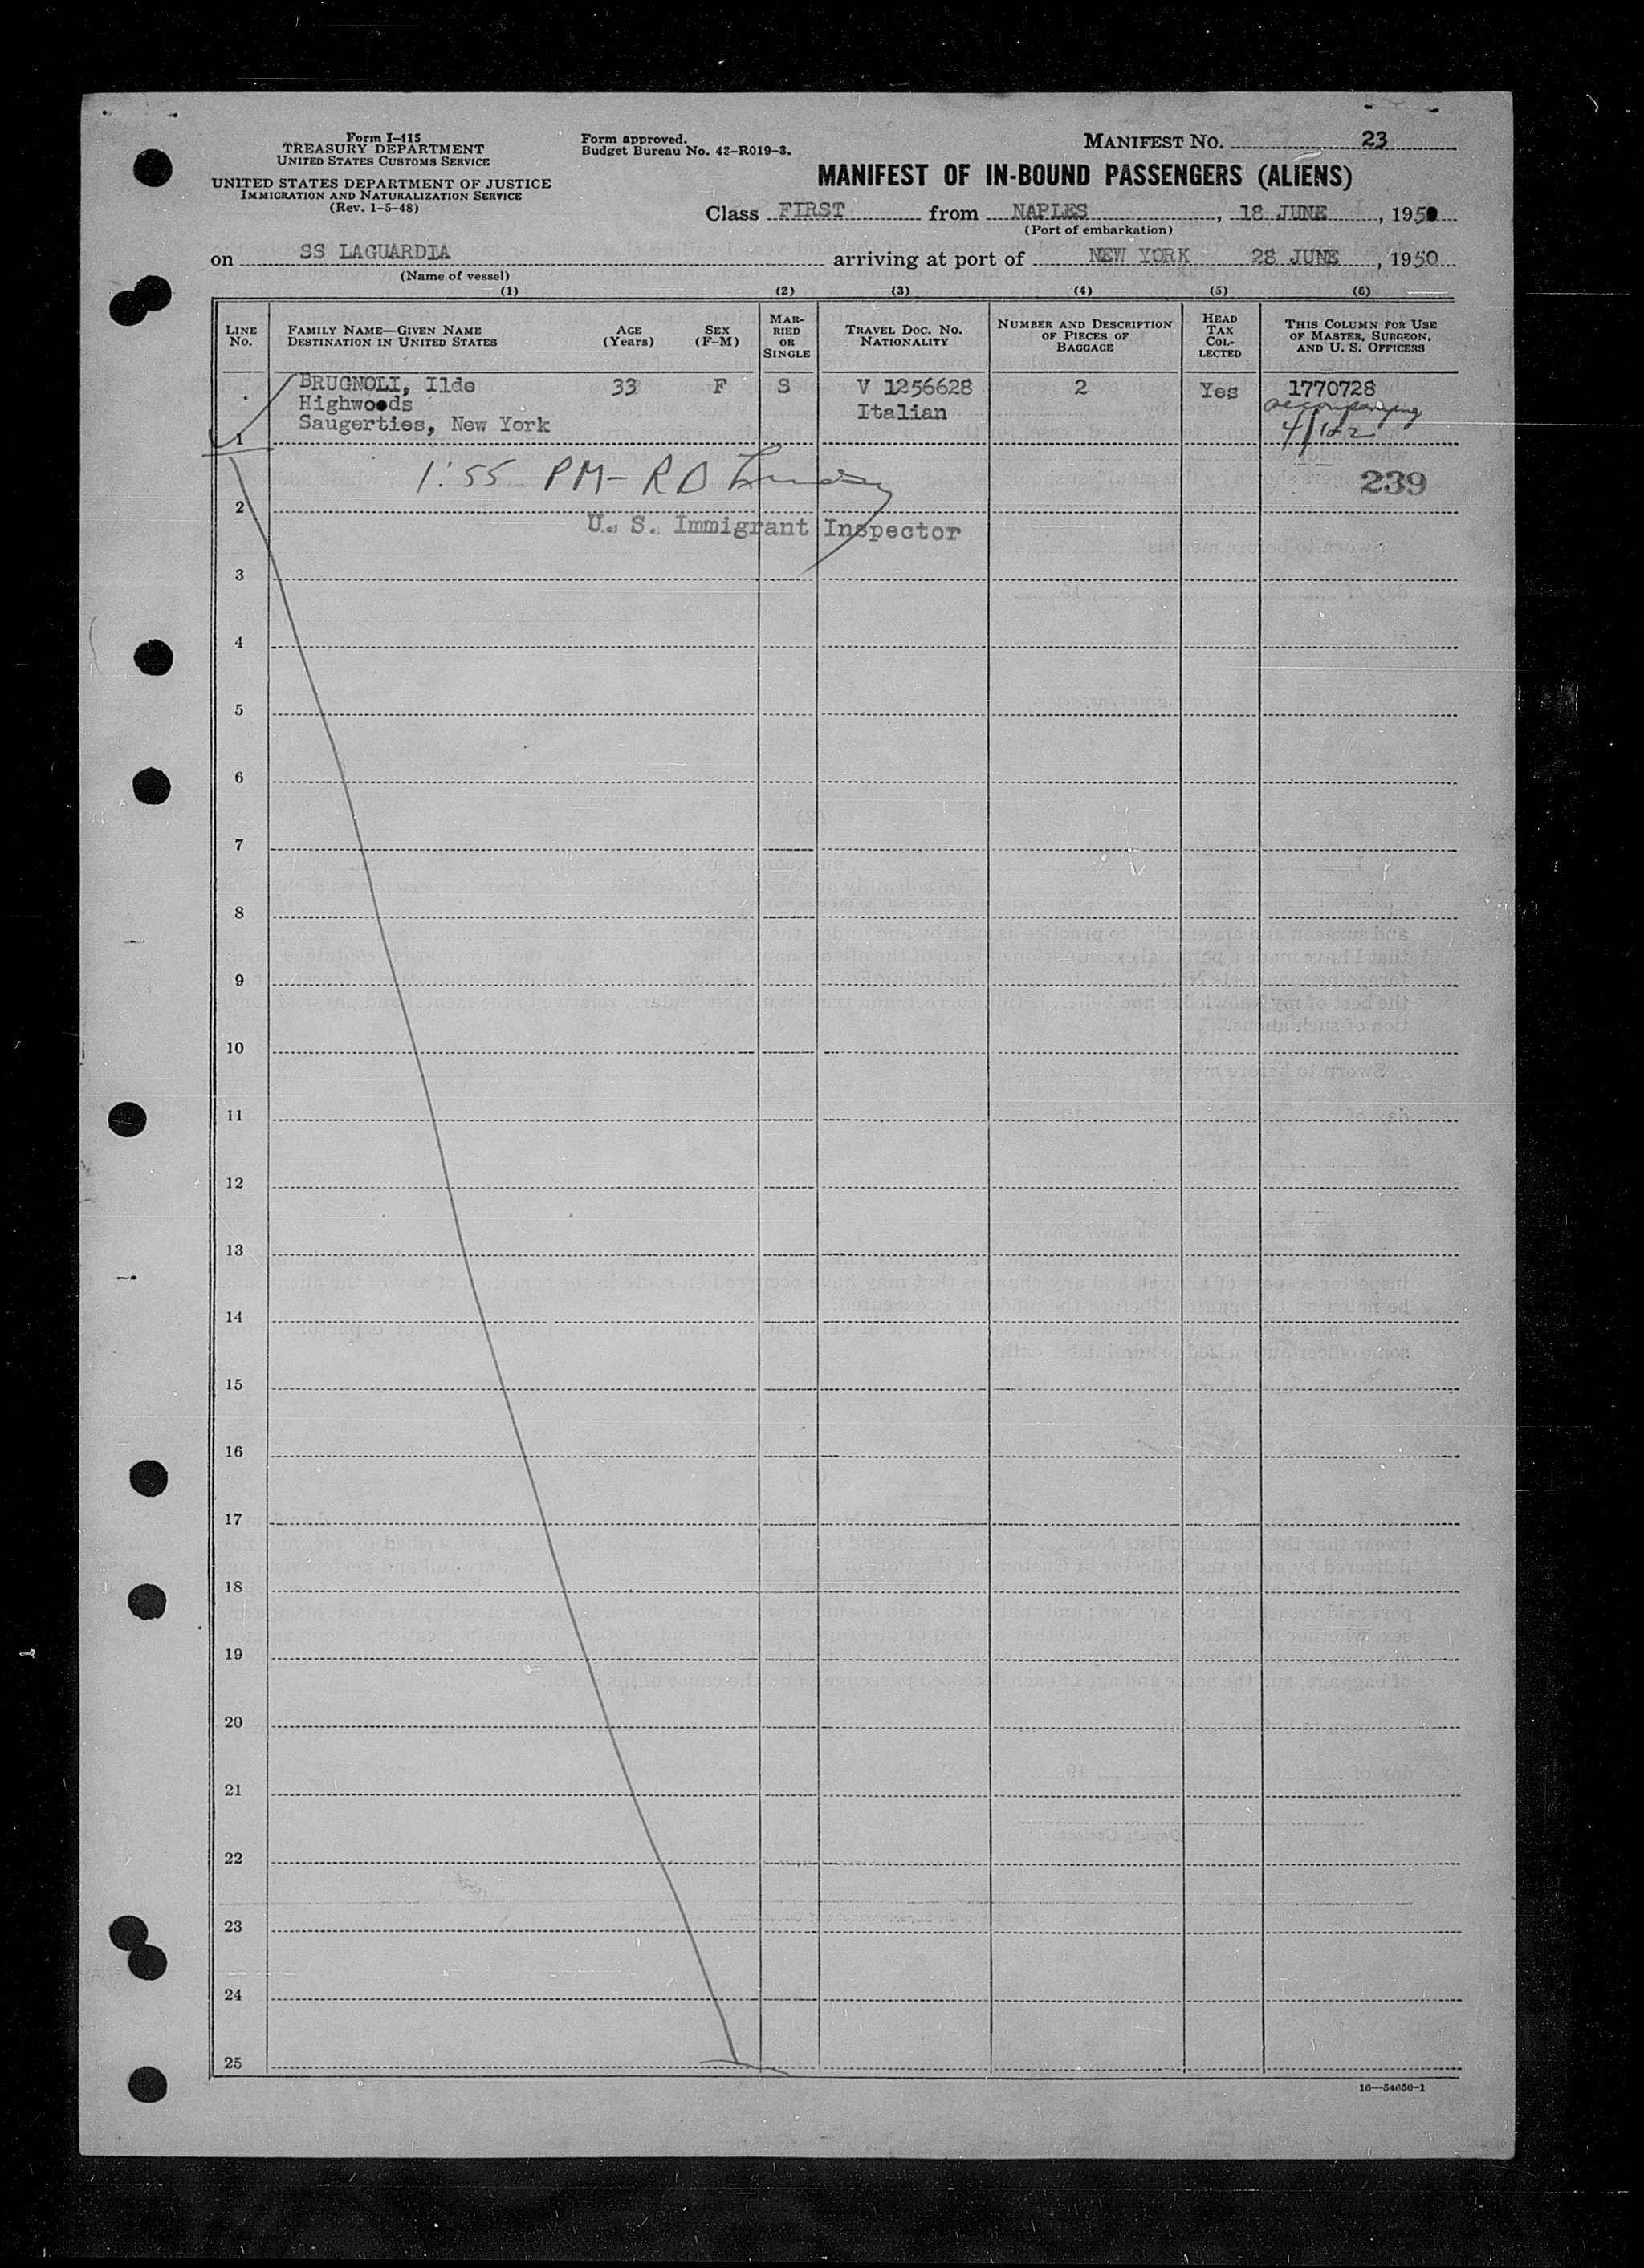 Form I-415
TREASURY DEPARTMENT
UNITED STATES CUSTOMS SERVICE
UNITED STATES DEPARTMENT OF JUSTICE
IMMIGRATION AND NATURALIZATION SERVICE
(Rev. 1-5-48)
Form approved.
Budget Bureau No. 43-R019-3.
MANIFEST NO. 23
MANIFEST OF IN-BOUND PASSENGERS (ALIENS)
Class FIRST from NAPLES, 18 JUNE, 1950
(Port of embarkation)
on SS LAGUARDIA arriving at port of NEW YORK 28 JUNE, 1950
(Name of vessel)
(1) (2) (3) (4) (5) (6)
LINE No.
FAMILY NAME—GIVEN NAME
DESTINATION IN UNITED STATES
AGE
(Years)
SEX
(F-M)
MAR-
RIED
OR
SINGLE
TRAVEL DOC. NO.
NATIONALITY
NUMBER AND DESCRIPTION
OF PIECES OF
BAGGAGE
HEAD
TAX
COL-
LECTED
THIS COLUMN FOR USE
OF MASTER, SURGEON,
AND U. S. OFFICERS
BRUGNOLI, Ilde 33 F S V 1256628 2 Yes 1770728
Highwoods Italian accompanying
Saugerties, New York
1
1:55 PM - R D
239
2
U. S. Immigrant Inspector
3
4
5
6
7
8
9
10
11
12
13
14
15
16
17
18
19
20
21
22
23
24
25
16—54650-1